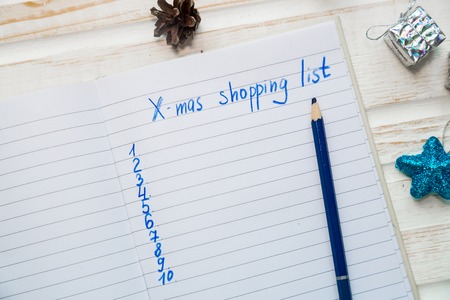 X-mas shopping list
1
2
3
4
5
6
7
8
9
10